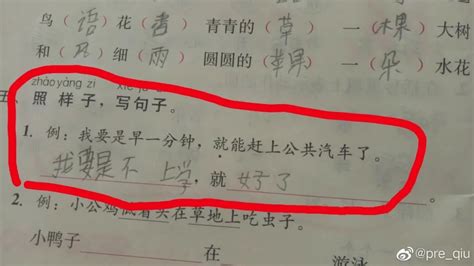 鸟 语 花 香 青青的 草 一 棵 大树
和 风 细 雨 圆圆的 苹果 一 朵 水花
zhào yàng zi xiě jù
五、照样子，写句子。
1. 例：我要是早一分钟，就能赶上公共汽车了。
我要是不上学，就 好了。
2. 例：小公鸡低着头在草地上吃虫子。
小鸭子 在 游泳
@pre_qiu